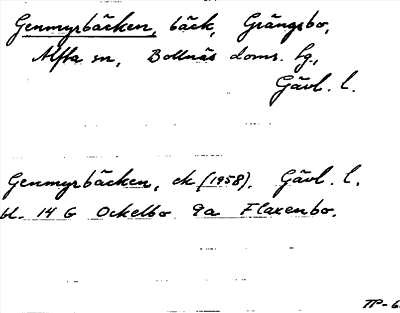 Genmyrbäcken, bäck, Grängsbo,
Alfta sn, Bollnäs doms. fg.,
Gävl. l.
Genmyrbäcken, ek (1958). Gävl. l.
bl. 14 G Ockelbo 9a Flaxenbo.
TP-6